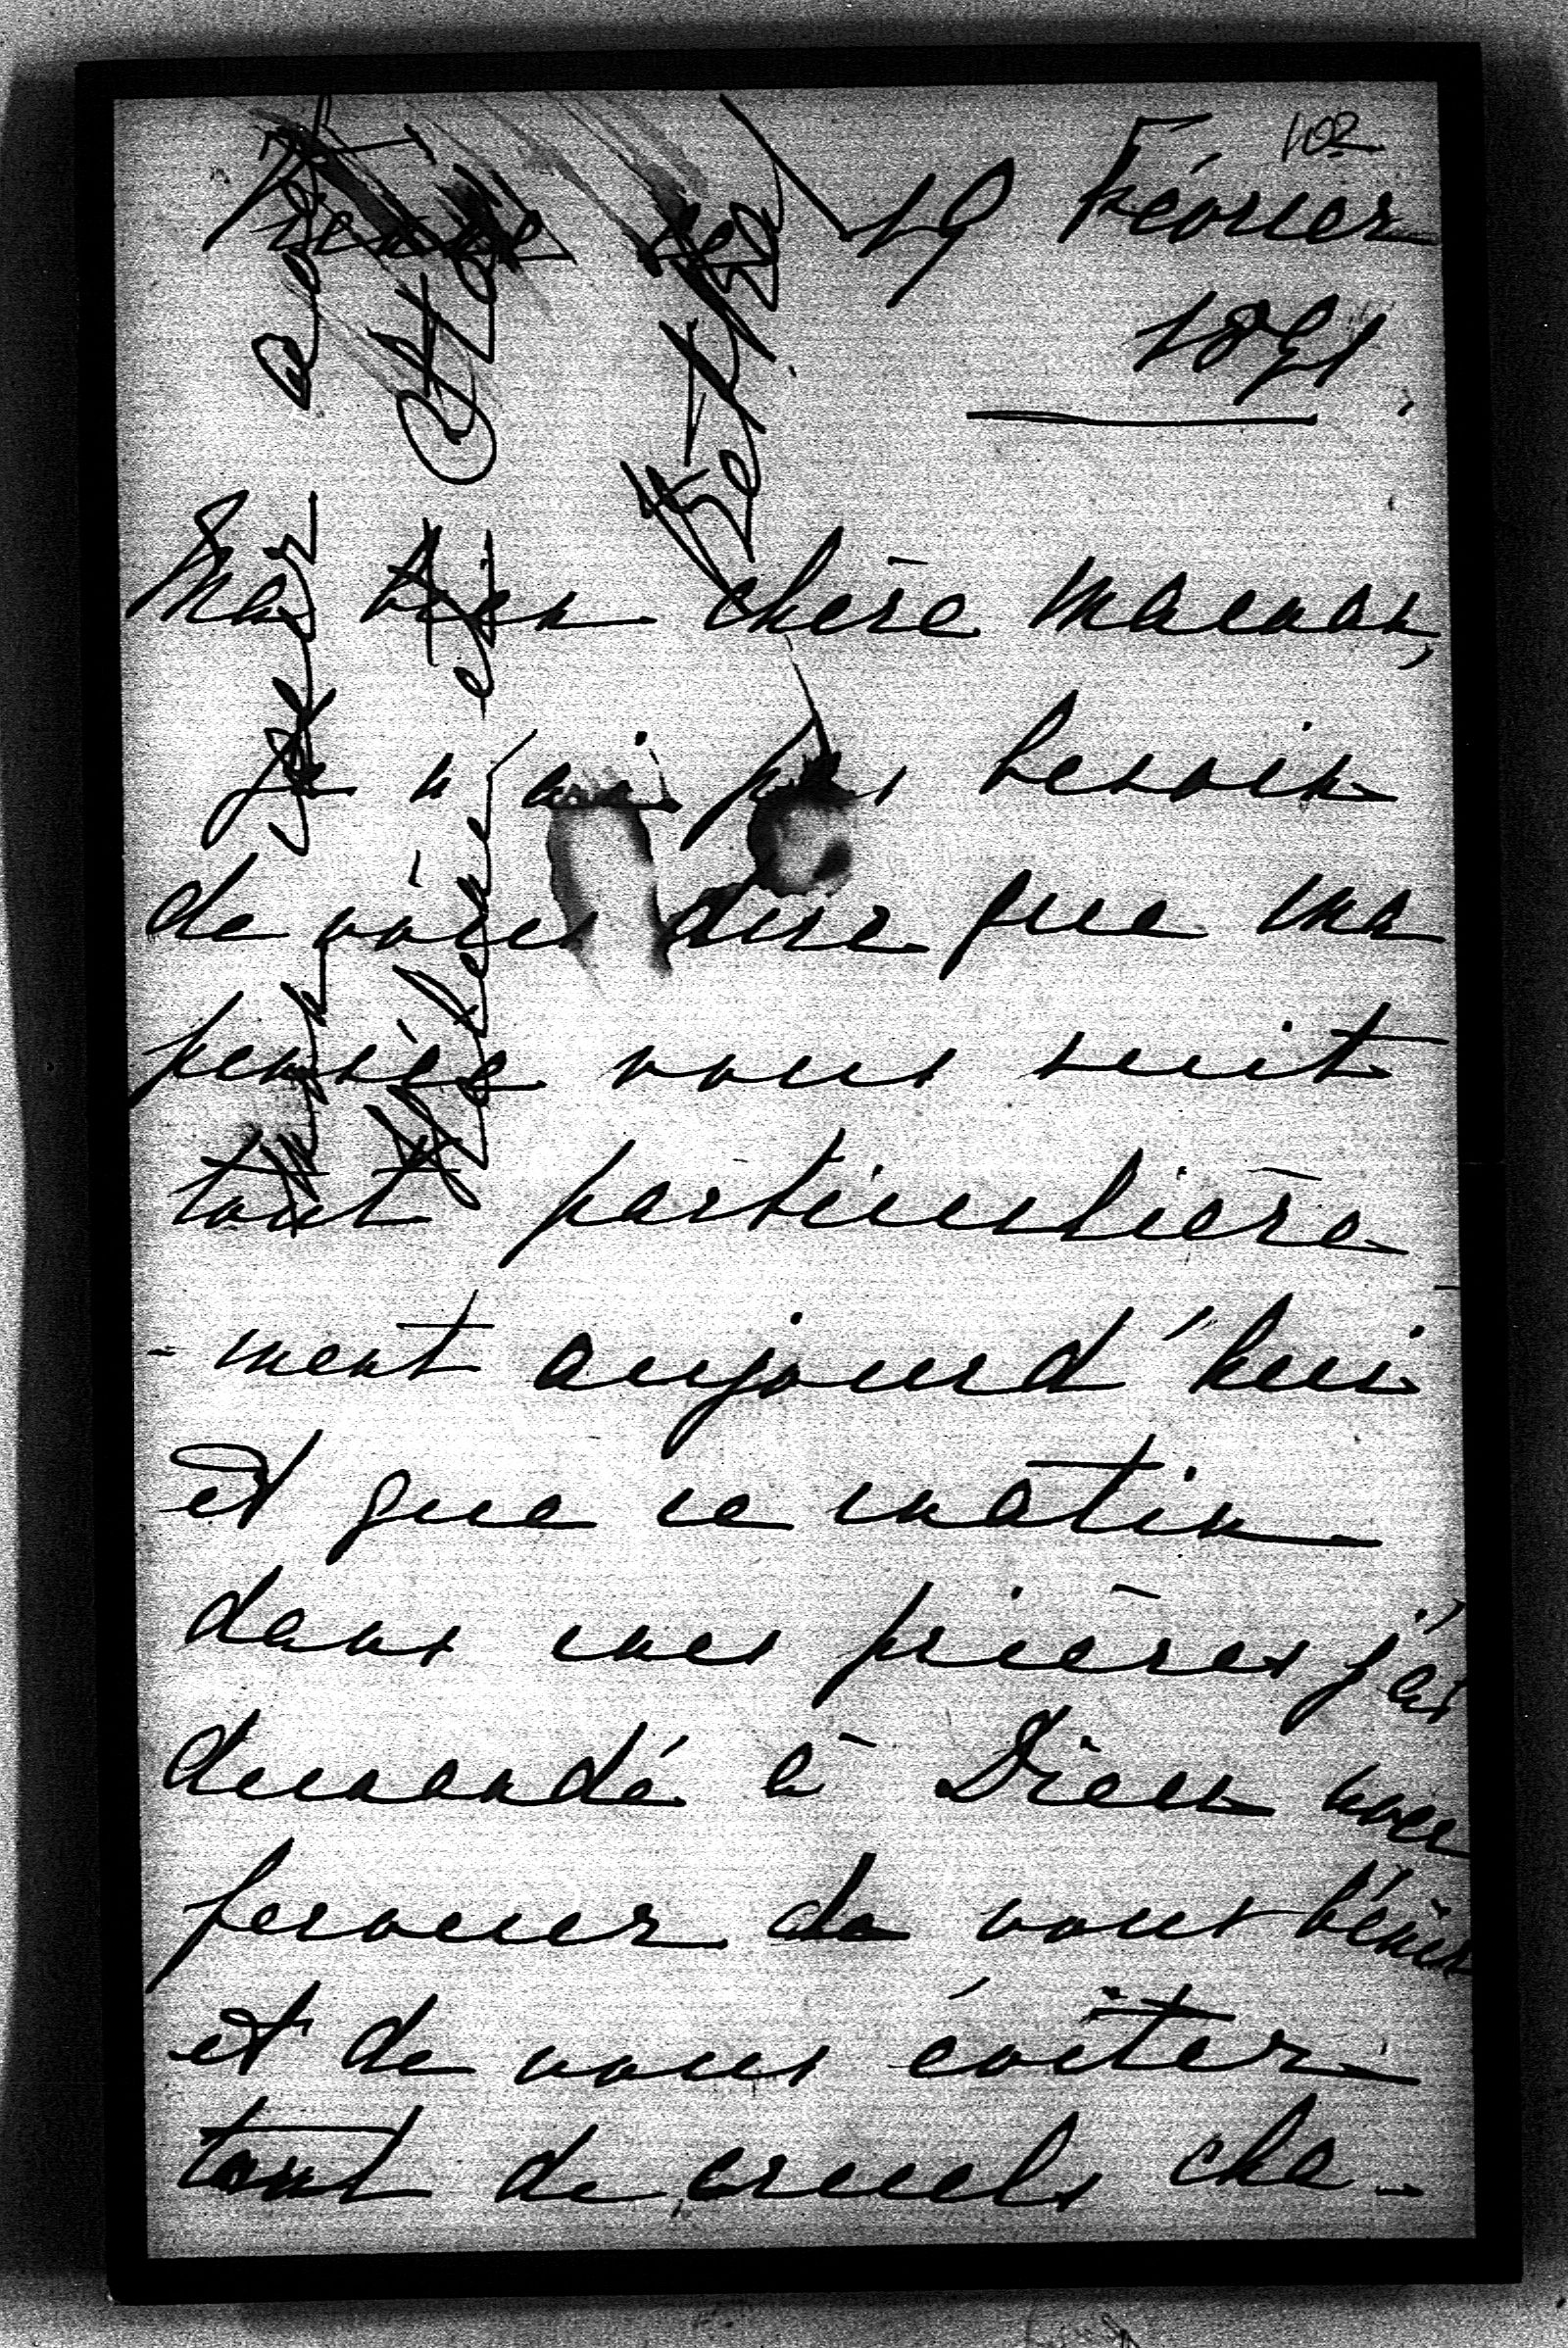 102
Vienne le 19 Février
1891
Ma bien chère maman,
Je n'ai pas besoin
de vous dire que ma
pensée vous suit
tout particulière
-ment aujourd'hui
et que ce matin
dans mes prières j'ai
demandé à Dieu avec
ferveur de vous bénir
et de vous éviter
tant de cruels cha-